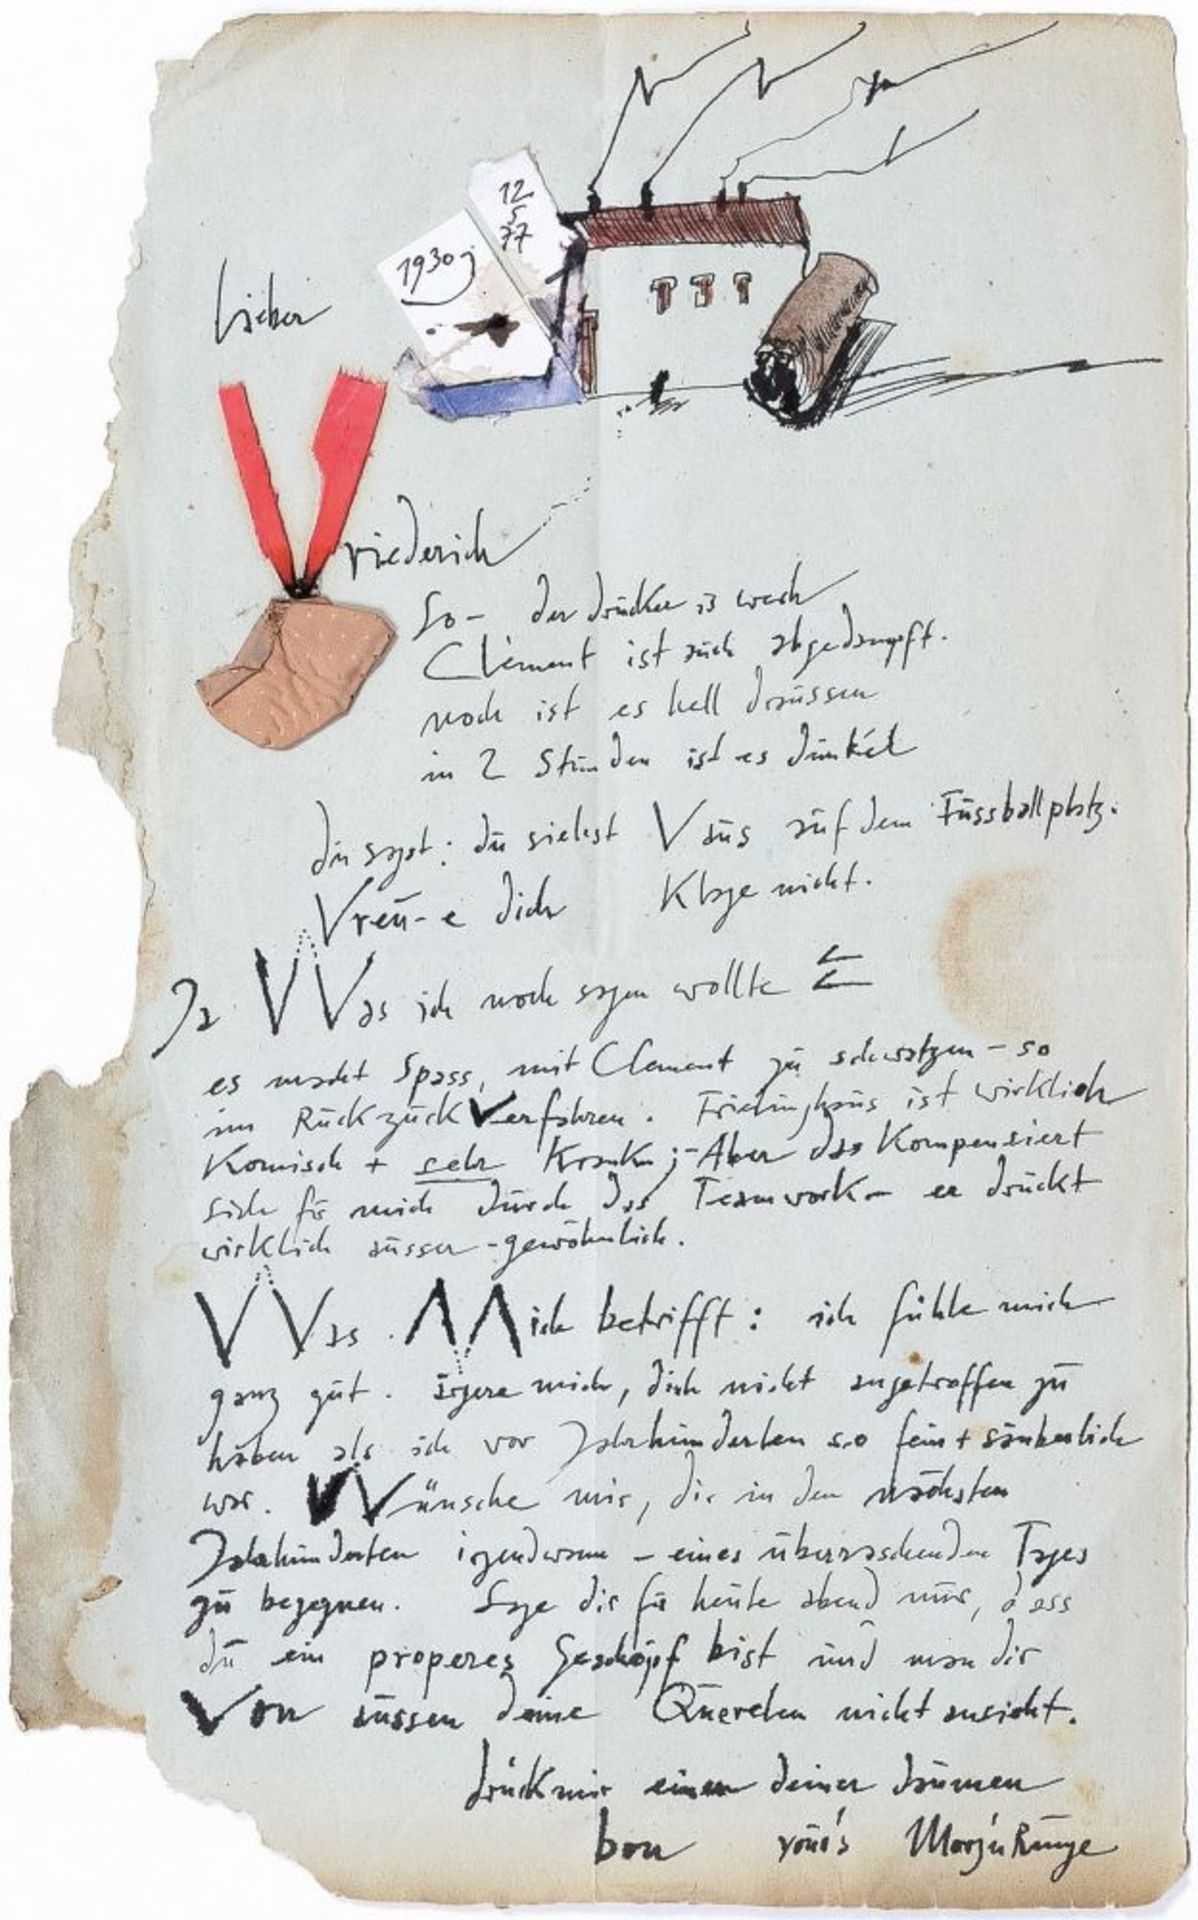 12
5
77
1930
Lieber
Friederich
So - der drücker is wech
Clement ist auch abgedampft.
noch ist es hell draussen
in 2 Stunden ist es dunkel
du sagst: du siehst Vaus auf dem Fussballplatz.
Vreu-e dich Klage nicht.
Ja VVas ich noch sagen wollte
es macht Spass, mit Clement zu schwatzen - so
im Rückzuck Verfahren. ist wirklich
Komisch + sehr Krank; - Aber das Kompensiert
sich für mich durch das Teamwork - er drückt
wirklich ausser-gewöhnlich.
VVas Mich betrifft: ich fühle mich
ganz gut. ärgere mich, dich nicht angetroffen zu
haben als ich vor Jahrhunderten so fein + säuberlich
war. VVünsche mir, dir in den nächsten
Jahrhunderten irgendwann - eines überraschenden Tages
zu begegnen. Sage dir für heute abend nur, dass
du ein properes Geschöpf bist und man dir
Von aussen deine Querelen nicht ansieht.
drück mir einen deiner daumen
bon